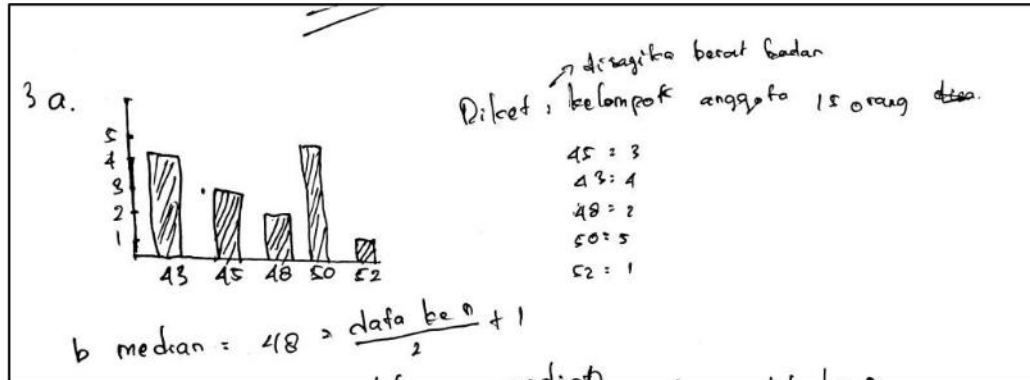 3 a.
5
4
3
2
1
43 45 48 50 52
disagika berat badan
Diket : kelompok anggota 15 orang
45 = 3
43 : 4
48 = 2
50 = 5
52 = 1
b median = 48 = data ke n / 2 + 1